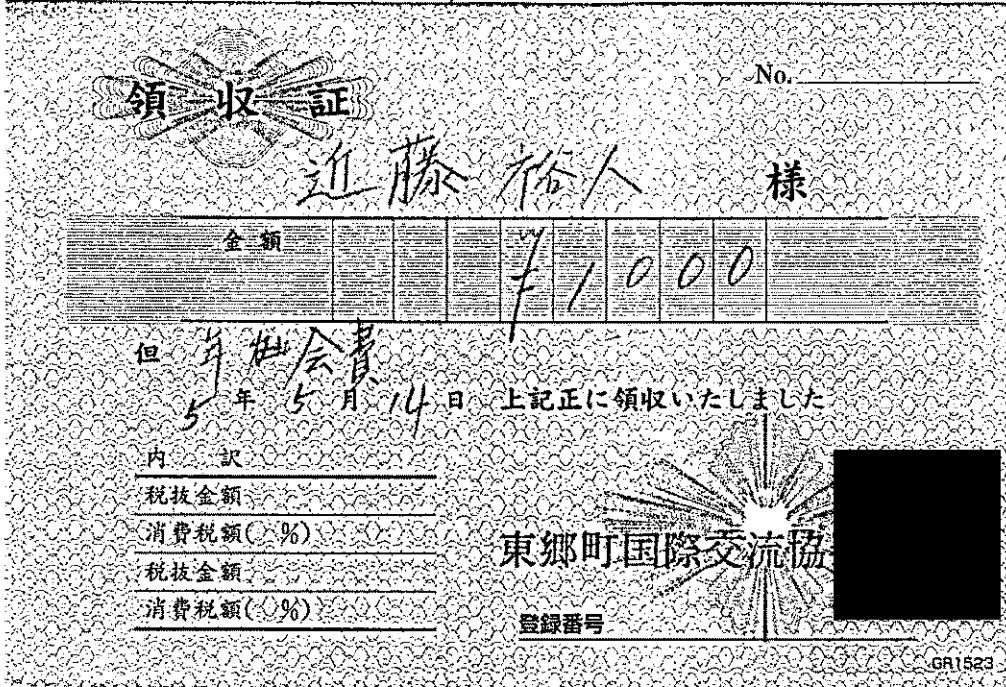 領収証
No.
近藤裕人 様
金額 ¥1000
但 年 会費
5年5月14日 上記正に領収いたしました
内訳
税抜金額
消費税額( %)
税抜金額
消費税額( %)
東郷町国際交流協
登録番号
GR1523